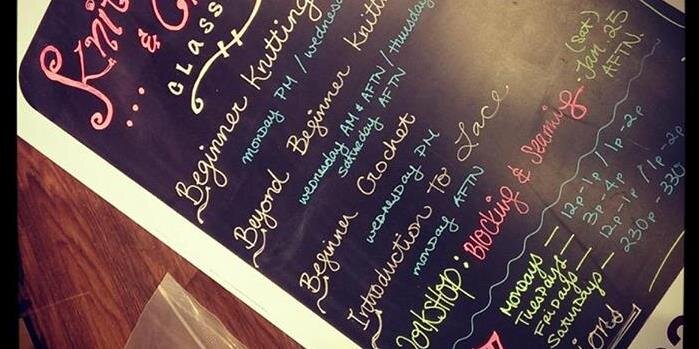 Knit
& C
CLASS
Beginner Knitting
monday PM / wednes
Beyond Beginner Knitt
wednesday AM & AFTN / thursday
saturday AFTN
Beginner Crochet
wednesday PM
Introduction to Lace
monday AFTN
orkshop: Blocking & Seaming · (Sat) Jan. 25
AFTN.
MONDAYS — 12p-1p / 1p-2p
TUESDAYS — 3p-4p
FRIDAYS — 12p-1p / 1p-2p
Saturdays — 230p-330
ions